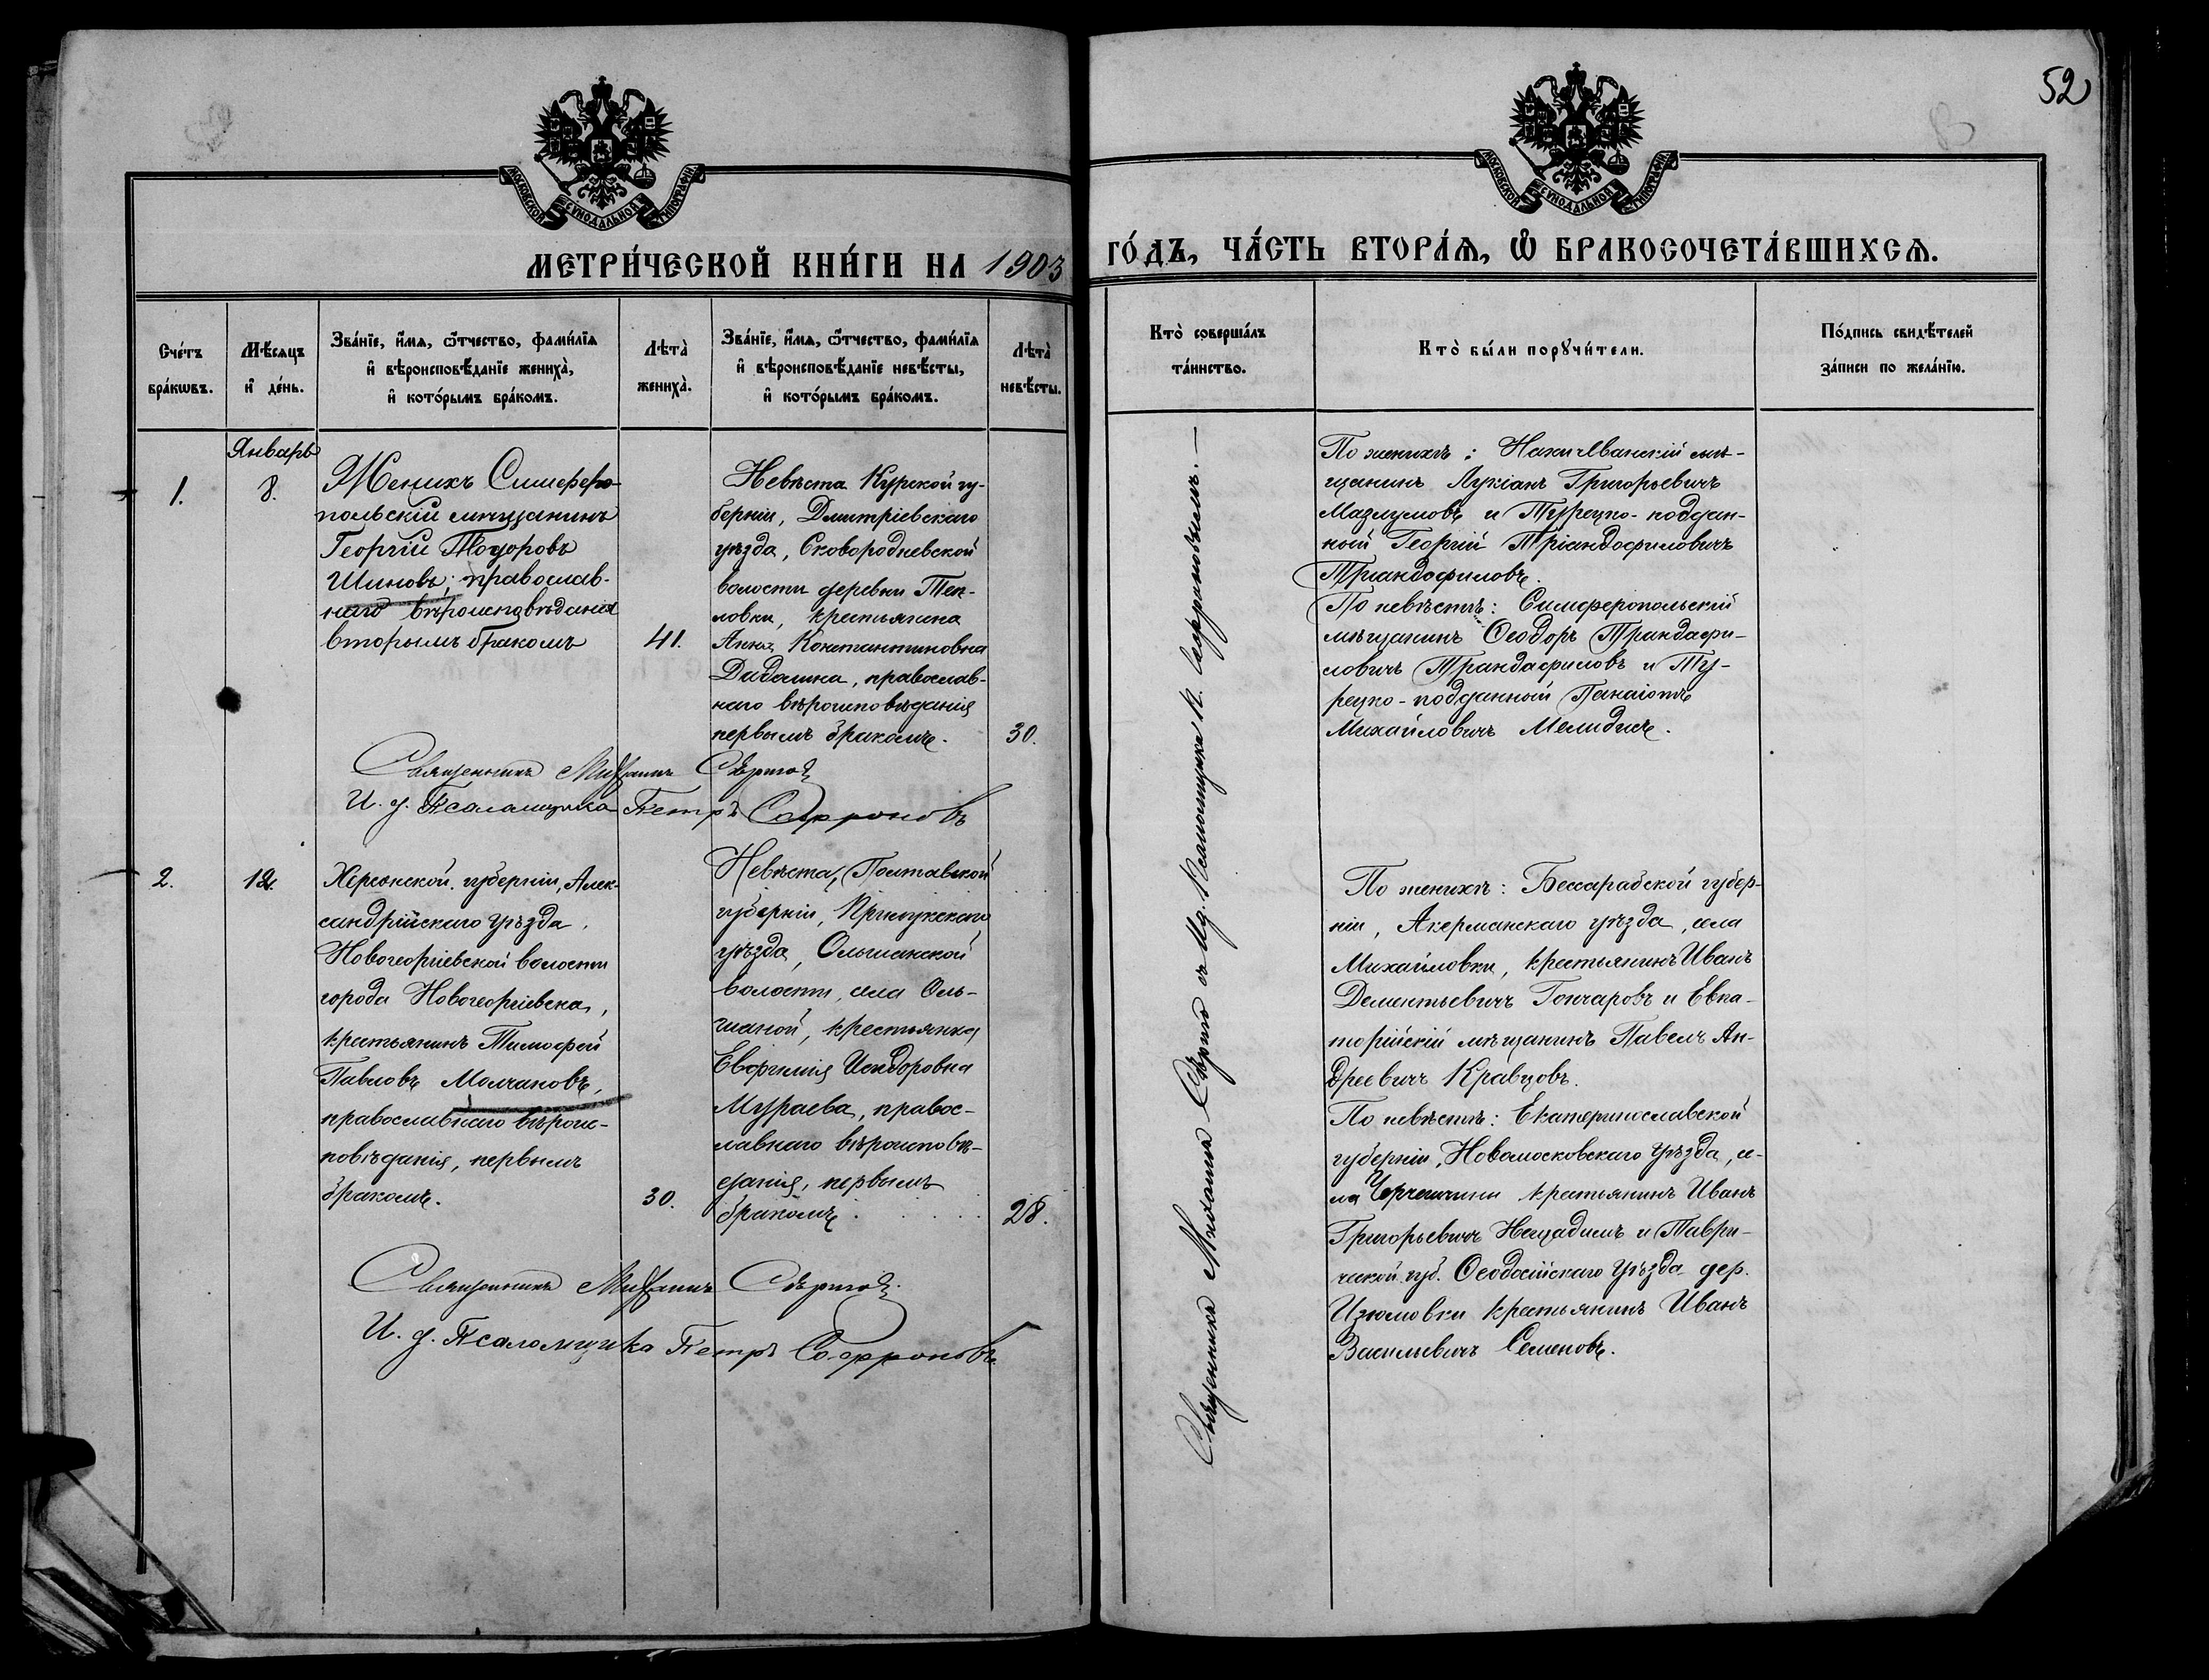 52
МОСКОВСКОЙ СѴНОДАЛЬНОЙ ТИПОГРАФІИ
МОСКОВСКОЙ СѴНОДАЛЬНОЙ ТИПОГРАФІИ
МЕТРИ́ЧЕСКОЙ КНИ́ГИ НА 1903
ГО́ДЪ, ЧА́СТЬ ВТОРА́Ѧ, Ѡ БРАКОСОЧЕТА́ВШИХСѦ.
Сче́тъ
бра́кѡвъ.
Мѣ́сяцъ
и҆ де́нь.
Зва́нїе, и҆́мѧ, ѻ҆́тчество, фами́лїѧ
и҆ вѣроисповѣ́данїе жениха̀,
и҆ кото́рымъ бра́комъ.
Лѣта̀
жениха̀.
Зва́нїе, и҆́мѧ, ѻ҆́тчество, фами́лїѧ
и҆ вѣроисповѣ́данїе невѣ́сты,
и҆ кото́рымъ бра́комъ.
Лѣта̀
невѣ́сты.
Кто̀ соверша́лъ
та́инство.
Кто̀ бы́ли порꙋчи́тели.
По́дпись свидѣ́телей
за́писи по жела́нїю.
1.
Январь
8.
Женихъ Симферо-
польскій мѣщанинъ
Георгій Тодоровъ
Шиновъ; православ-
наго вѣроисповѣданія
вторымъ бракомъ
41.
Невѣста Курской гу-
берніи, Дмитріевскаго
уѣзда, Сковородневской
волости деревни Теп-
ловки, крестьянина
Анна Константиновна
православ-
наго вѣроисповѣданія
первымъ бракомъ.
30.
Священникъ Михаилъ
И. д. Псаломщика Петръ Софроновъ
По женихѣ: Нахичеванскій мѣ-
щанинъ Лукіанъ Григорьевичъ
Мазлумовъ и Турецко-поддан-
ный Георгій Тріандофиловичъ
Тріандофиловъ.
По невѣстѣ: Симферопольскій
мѣщанинъ Ѳеодоръ Трандафи-
ловичъ Трандафиловъ и Ту-
рецко-подданный Панаіотъ
Михайловичъ Мелидисъ.
2.
12.
Херсонской губерніи, Алек-
сандрійскаго уѣзда,
Новогеоргіевской волости
города Новогеоргіевска,
крестьянинъ Тимофей
Павловъ Молчановъ,
православнаго вѣроис-
повѣданія, первымъ
бракомъ.
30.
Невѣста, Полтавской
губерніи, Прилукскаго
уѣзда, Ольшанской
волости, села Оль-
шаной, крестьянка
Евфимія Исидоровна
Мураева, правос-
лавнаго вѣроисповѣ-
данія, первымъ
бракомъ.
28.
Священникъ Михаилъ
И. д. Псаломщика Петръ Софроновъ
По женихѣ: Бессарабской губер-
ніи, Акерманскаго уѣзда, села
Михайловки, крестьянинъ Иванъ
Дементьевичъ Гончаровъ и Евпа-
торійскій мѣщанинъ Павелъ Ан-
дреевичъ Кравцовъ.
По невѣстѣ: Екатеринославской
губерніи, Новомосковскаго уѣзда, се-
ла крестьянинъ Иванъ
Григорьевичъ Нещадимъ и Таври-
ческой губ. Ѳеодосійскаго уѣзда дер.
Изюмовки крестьянинъ Иванъ
Васильевичъ Семеновъ.
Священникъ Михаилъ съ И.д. Псаломщика П. Софроновымъ.—